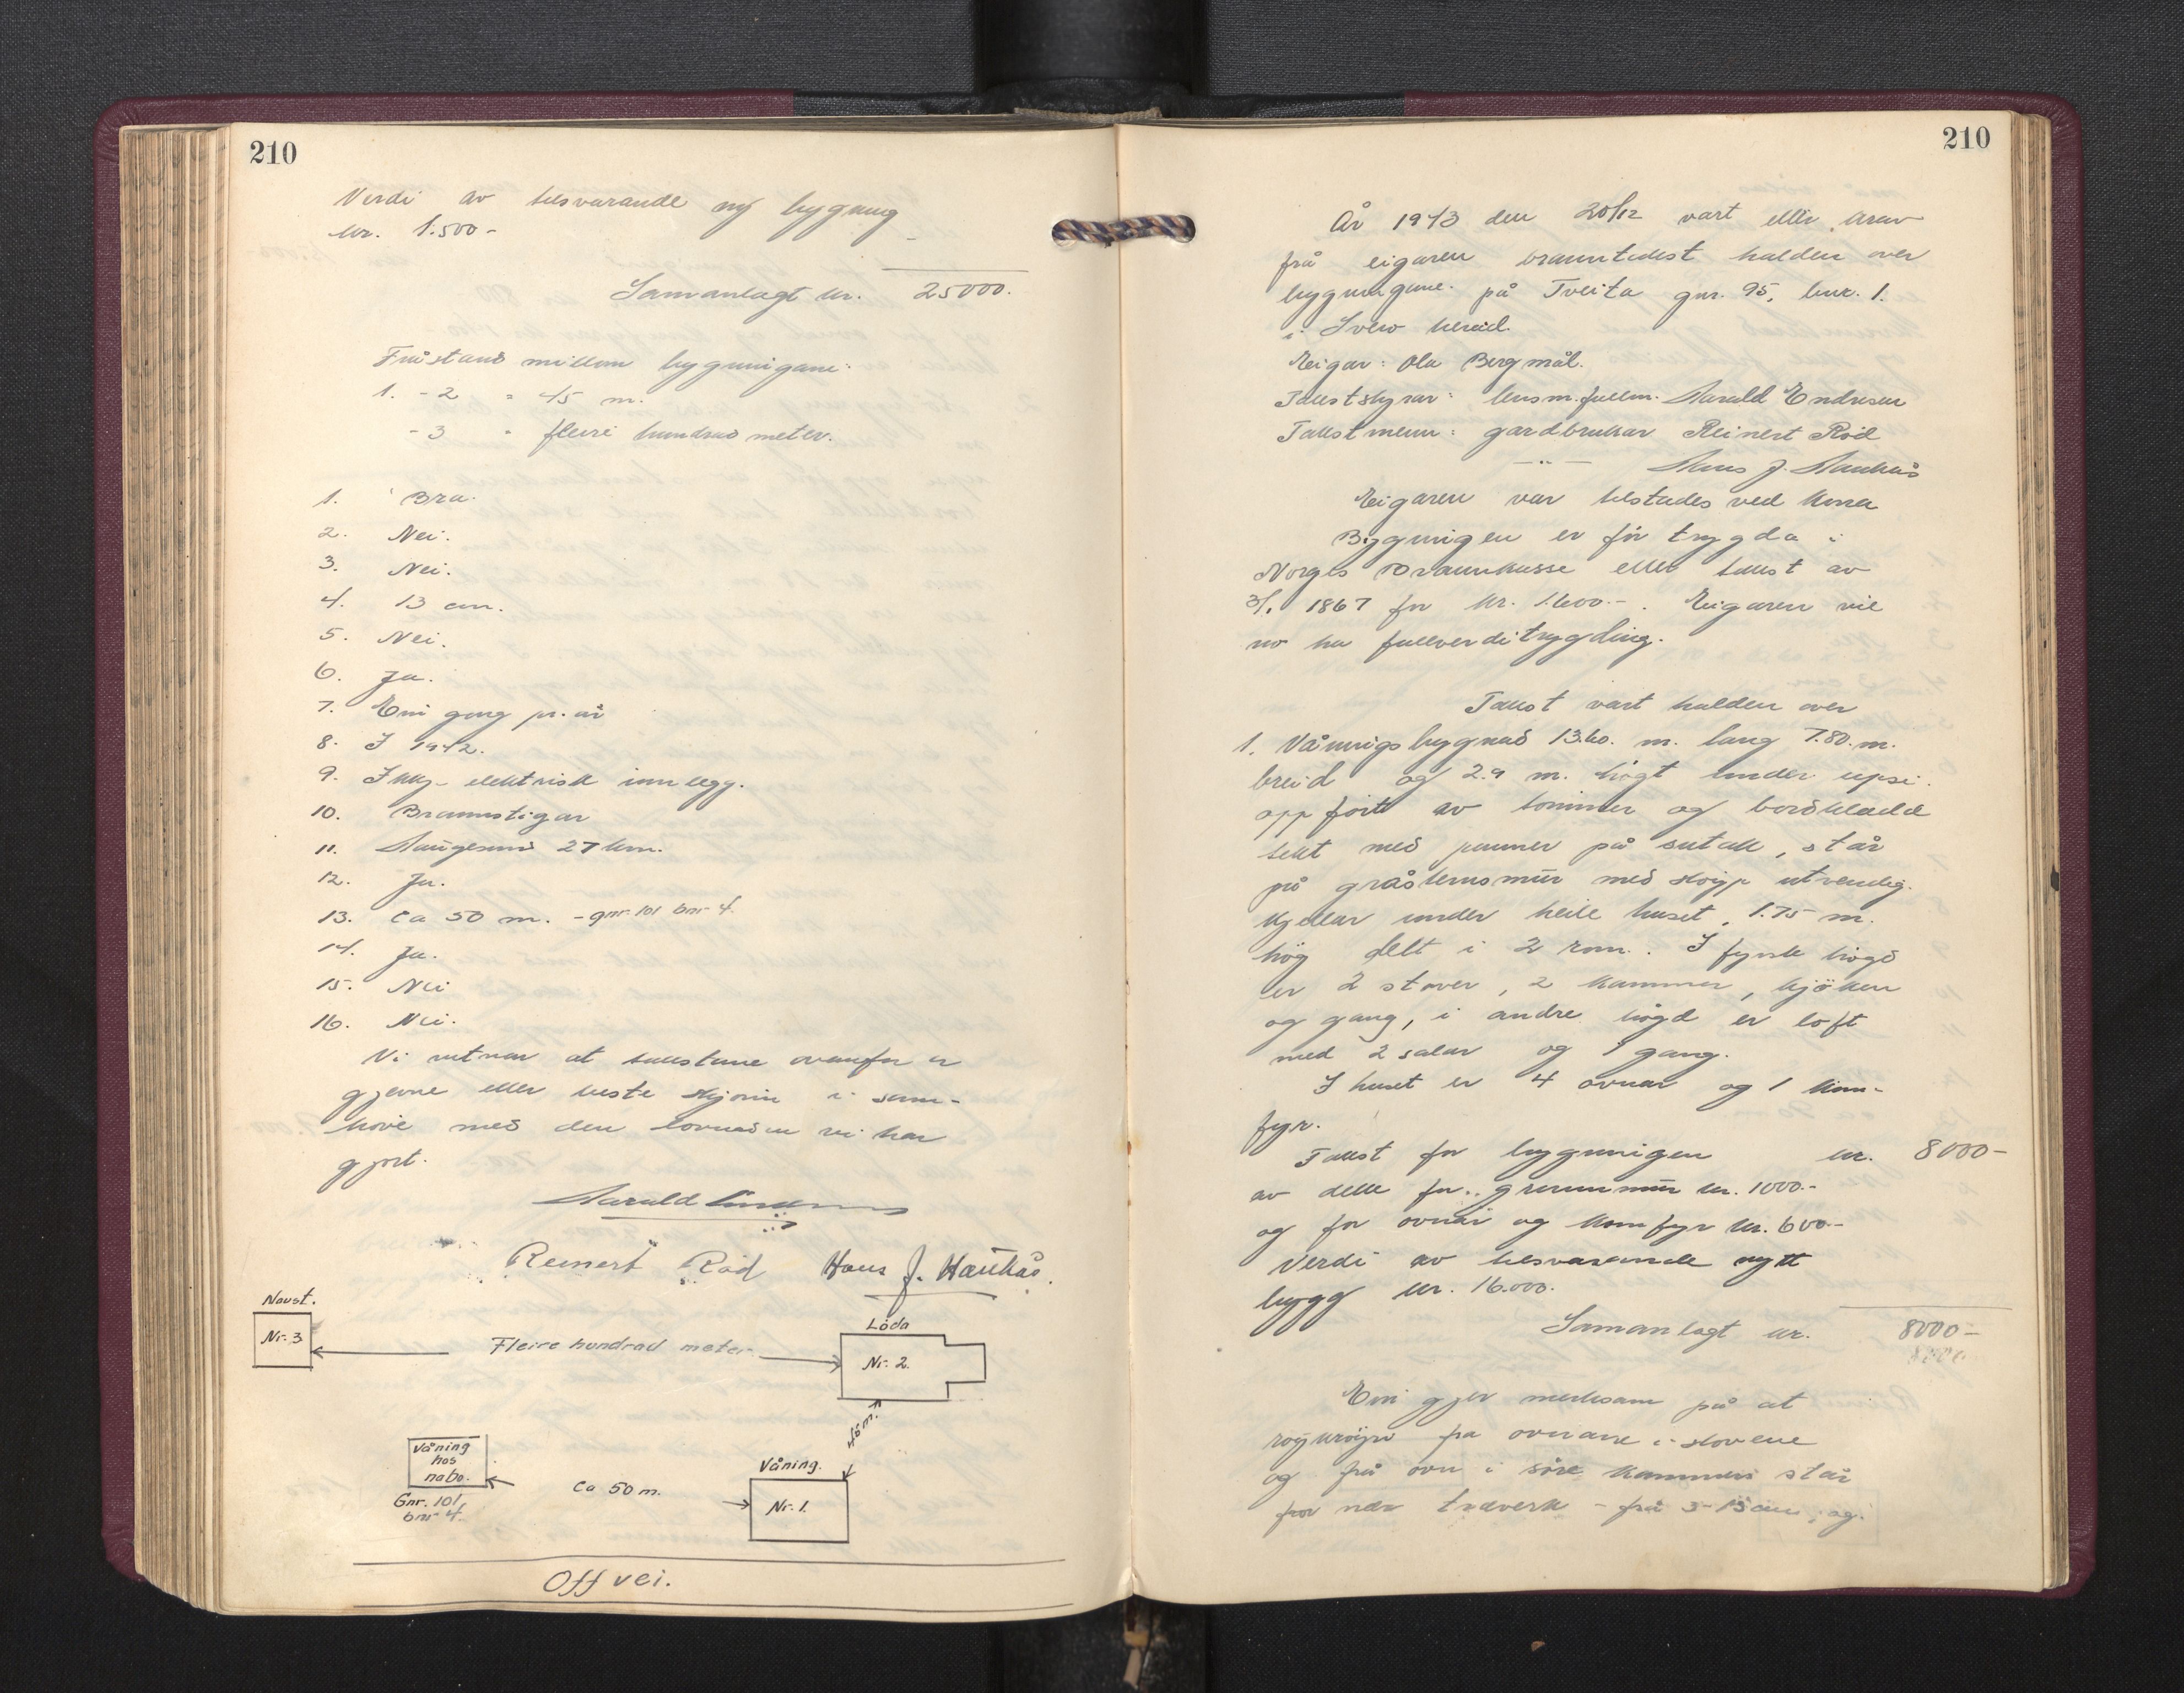 210
Verdi av tilsvarande ny bygning
kr. 1.500 -
Samanlagt kr. 25000.
Fråstand millom bygningane:
1. - 2 = 45 m.
- 3 = fleire hundrad meter.
1. Bra.
2. Nei.
3. Nei.
4. 13 cm.
5. Nei.
6. Ja.
7. Ein gong pr. år
8. I 1942.
9. Ikkj- elektrisk innlegg.
10. Brannstigar
11. Haugesund 27 km.
12. Ja.
13. Ca 50 m. - gnr. 101 bnr 4.
14. Ja.
15. Nei
16. Nei.
Vi vitnar at takstane ovanfor er
gjevne etter beste skjønn i sam-
høve med den lovnaden vi har
gjort.
Harald Endresen
Reinert Rød Hans J. Haukås.
Naust.
Nr. 3
Fleire hundrad meter.
Löda
Nr. 2.
45 m.
Våning
hos
nabo.
Gnr. 101,
bnr 4.
Ca 50 m.
Våning.
Nr. 1.
Off vei.
210
År 1943 den 20/12 vart etter krav
frå eigaren branntakst halden over
bygningane på Tveita gnr. 95, bnr. 1.
i Sveio herad.
Eigar: Ola Bergmål.
Takststyrar: lensm.fullm. Harald Endresen
Takstmenn: gardbrukar Reinert Rød
— " — Hans J. Haukås
Eigaren var tilstades ved
Bygningen er før trygda i
Norges Brannkasse etter takst av
3/1 1867 for kr. 1600.-. Eigaren vil
no ha fullverditrygding.
Takst vart halden over
1. Våningsbygnad 13.60. m. lang 7.80. m.
breid og 2.9 m. høgt under upsi.
oppført av tømmer og bordkledd
tekt med panner på sutak, står
på gråsteinsmur med støyp utvendig.
Kjellar under heile huset, 1.75 m.
høg delt i 2 rom. I fyrste høgd
er 2 stover, 2 kammer, kjøken
og gang, i andre høgd er loft
med 2 salar og 1 gang.
I huset er 4 ovnar og 1 kom-
fyr.
Takst for bygningen kr. 8000-
av dette for grunnmur kr. 1000.-
og for ovnar og komfyr kr. 600.-
Verdi av tilsvarande nytt
bygg kr. 16.000.
Samanlagt kr. 8000-
8000
Ein gjer merksam på at
røykrøyr fra ovnane i stovene
og frå ovn i søre kammers står
for nær treverk - frå 3-13 cm, og